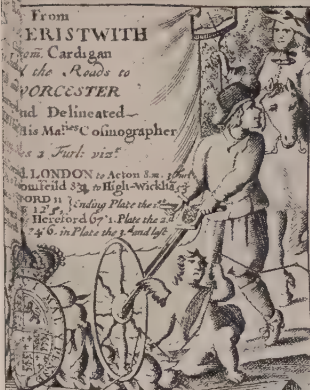 From
ERISTWITH
om̃. Cardigan
the Roads to
WORCESTER
nd Delineated
His Maties Cosmographer
es 2 Furl: vizt
LONDON to Acton 8 m.
8¾, to High-Wickha
ORD 11
12'5, Ending Plate the
Hereford 67'1. Plate the 2.
74'6. in Plate the 3.d and last